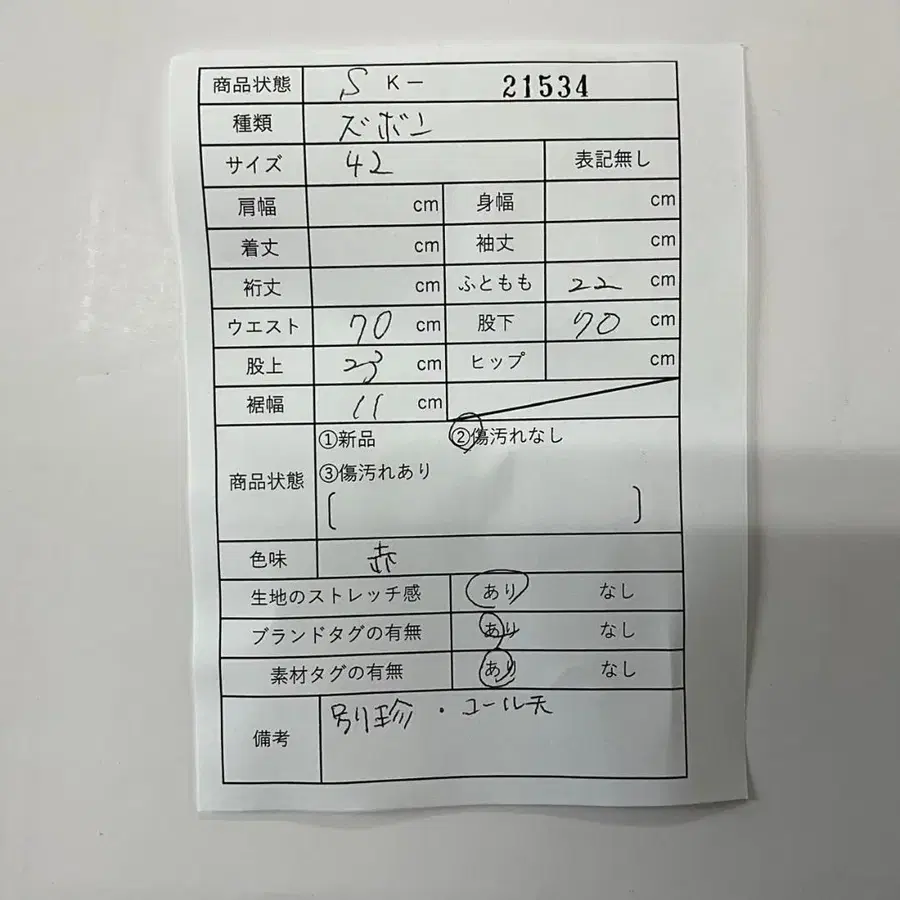 商品状態 S K- 21534
種類 ズボン
サイズ 42 表記無し
肩幅 cm 身幅 cm
着丈 cm 袖丈 cm
裄丈 cm ふともも 22 cm
ウエスト 70 cm 股下 70 cm
股上 23 cm ヒップ cm
裾幅 11 cm
商品状態 ①新品 ②傷汚れなし
③傷汚れあり
[ ]
色味 赤
生地のストレッチ感 あり なし
ブランドタグの有無 あり なし
素材タグの有無 あり なし
備考 別珍・コール天